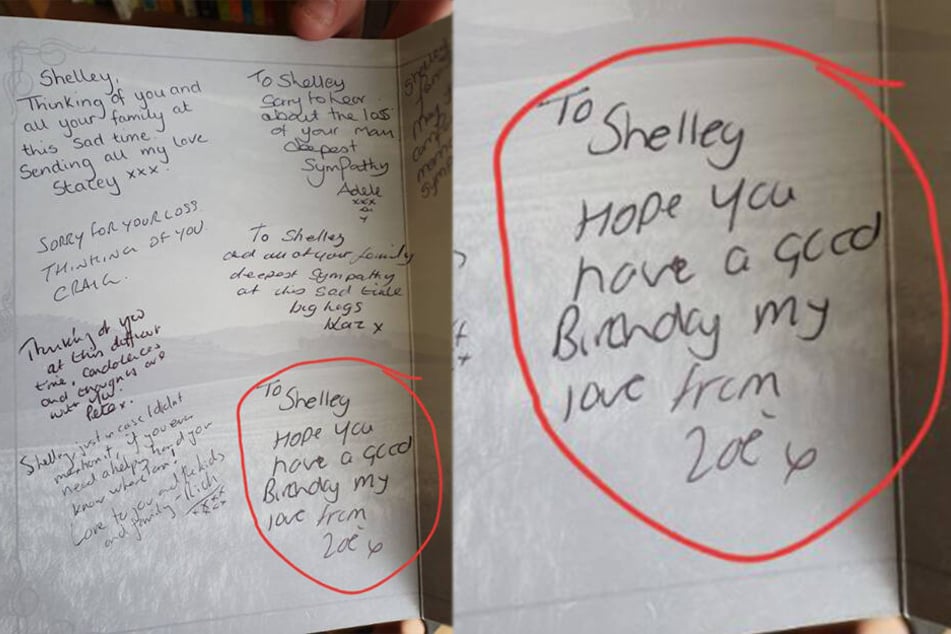 Shelley,
Thinking of you and
all your family at
this sad time.
Sending all my love
Stacey xxx.
SORRY FOR YOUR LOSS
THINKING OF YOU.
CRAIG.
Thinking of you
at this difficult
time, condolences
and thoughts are
with you.
Peter.
Shelley, just in case I didnt
mention it, if you ever
need a helping hand you
know where I am!
Love to you and the kids
and family - Rich
xxxx
To Shelley
Sorry to hear
about the loss
of your man
Deepest
Sympathy
Adele
xxx
To Shelley
and all of your family
deepest sympathy
at this sad time
big hugs
Kaz x
To Shelley
Hope you
have a good
Birthday my
love from
Zoë x
To
Shelley
Hope you
have a good
Birthday my
love from
Zoë x